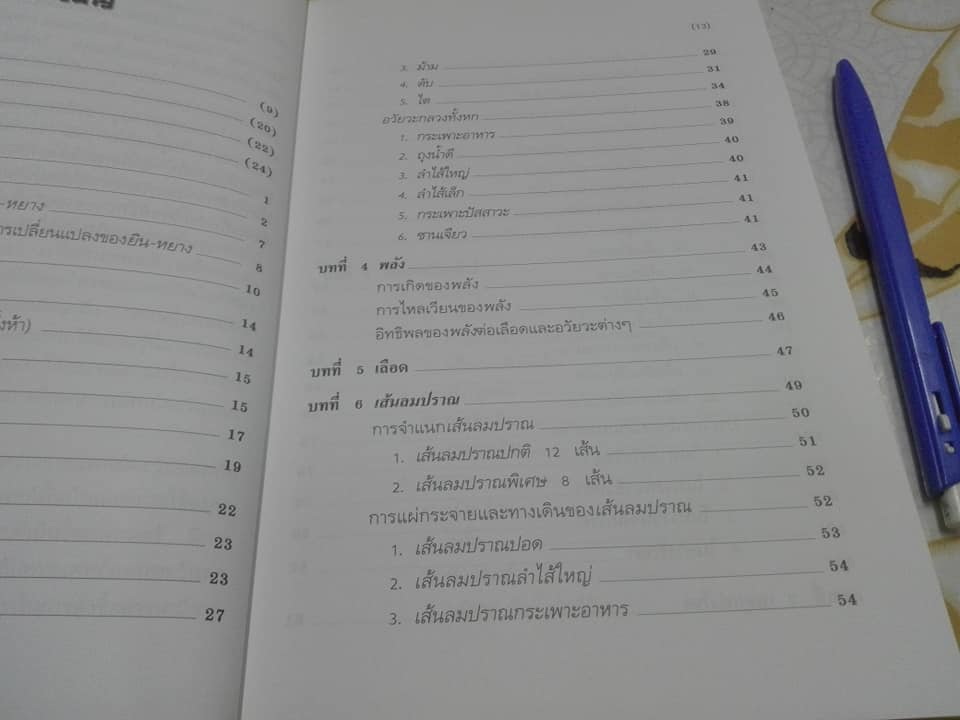 (9)
(20)
(22)
(24)
1
-หยาง 2
7
ารเปลี่ยนแปลงของยิน-หยาง 8
10
14
งห้า) 14
15
15
17
19
22
23
23
27
(13)
3. ม้าม 29
4. ตับ 31
5. ไต 34
อวัยวะกลวงทั้งหก 38
1. กระเพาะอาหาร 39
2. ถุงน้ำดี 40
3. ลำไส้ใหญ่ 40
4. ลำไส้เล็ก 41
5. กระเพาะปัสสาวะ 41
6. ซานเจียว 41
บทที่ 4 พลัง 43
การเกิดของพลัง 44
การไหลเวียนของพลัง 45
อิทธิพลของพลังต่อเลือดและอวัยวะต่างๆ 46
บทที่ 5 เลือด 47
บทที่ 6 เส้นลมปราณ 49
การจำแนกเส้นลมปราณ 50
1. เส้นลมปราณปกติ 12 เส้น 51
2. เส้นลมปราณพิเศษ 8 เส้น 52
การแผ่กระจายและทางเดินของเส้นลมปราณ 52
1. เส้นลมปราณปอด 53
2. เส้นลมปราณลำไส้ใหญ่ 54
3. เส้นลมปราณกระเพาะอาหาร 54